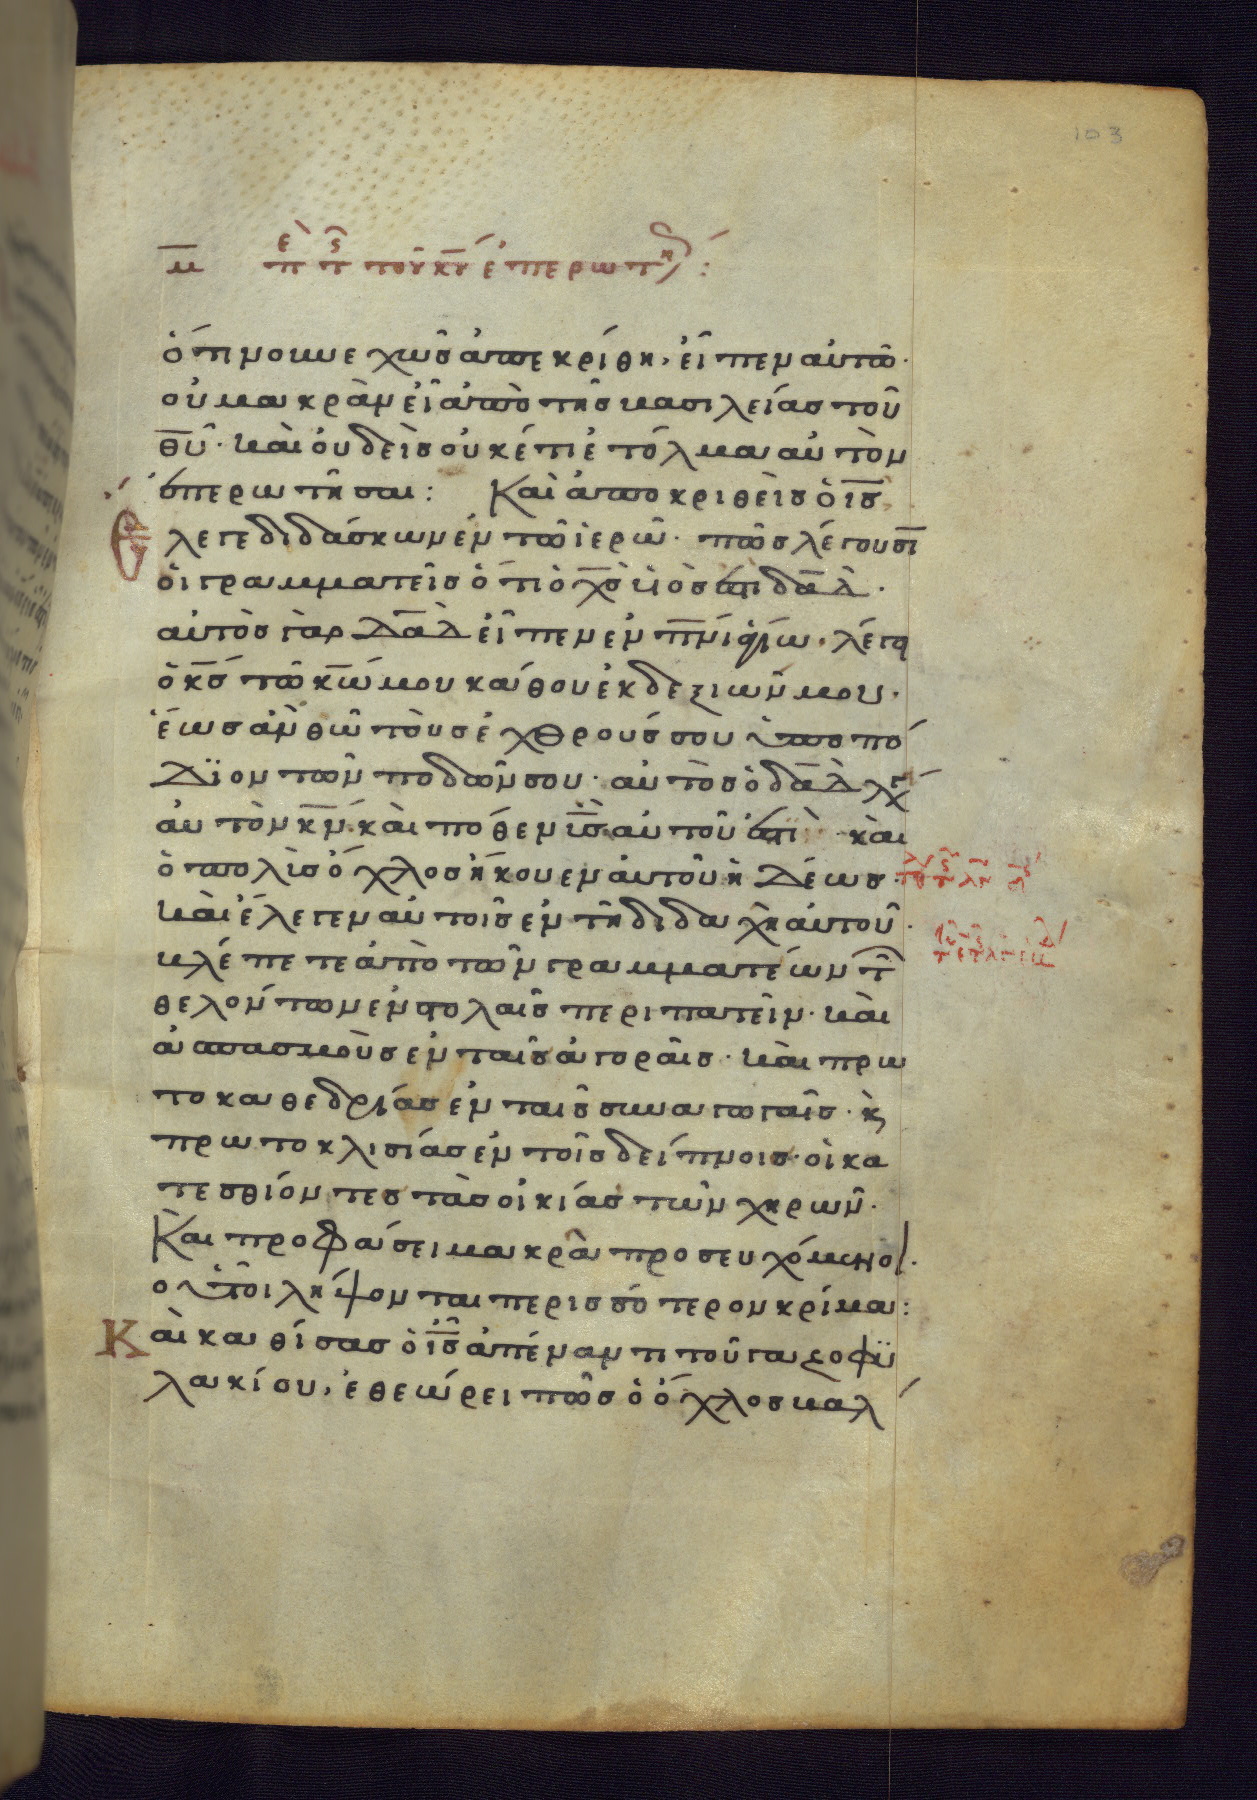 103
μ̅ πε τς τοῦ κ̅υ̅ ἐπερωτή :
ὅτι νουνεχῶσ ἀπεκρίθη, εἶπεν αὐτῶ·
οὐ μακρὰν εἶ ἀπὸ τῆσ βασιλείασ τοῦ
θ̅υ̅· καὶ οὐδεὶσ οὐκέτι ἐτόλμα αὐτὸν
ἐπερωτῆσαι: Καὶ ἀποκριθεὶσ ὁ ι̅σ̅
ἔλεγε διδάσκων ἐν τῶ ἱερῶ· πῶσ λέγουσι
οἱ γραμματεῖσ ὅτι ὁ χ̅σ̅ υἱόσ ἐστι δ̅α̅δ̅·
αὐτὸσ γὰρ δ̅α̅δ̅ εἶπεν ἐν π̅ν̅ι ἁγίω· λέγει
ὁ κ̅σ̅ τῶ κ̅ω̅ μου κάθου ἐκ δεξιῶν μου·
ἕωσ ἂν θῶ τοὺσ ἐχθρούσ σου ὑποπό
διον τῶν ποδῶν σου· αὐτὸσ ὁ δ̅α̅δ̅ λέγει
αὐτὸν κ̅ν̅· καὶ πόθεν υ̅σ̅ αὐτοῦ ἐστι καὶ
ὁ πολὺσ ὄχλοσ ἤκουεν αὐτοῦ ἡδέωσ·
καὶ ἔλεγεν αὐτοῖσ ἐν τῆ διδαχῆ αὐτοῦ·
βλέπετε ἀπὸ τῶν γραμματέων τῶν
θελόντων ἐν στολαῖσ περιπατεῖν· καὶ
ἀσπασμοὺσ ἐν ταῖσ ἀγοραῖσ· καὶ πρω
τοκαθεδρίασ ἐν ταῖσ συναγωγαῖσ· κ̀
πρωτοκλισίασ ἐν τοῖσ δείπνοισ· οἱ κα
τεσθίοντεσ τὰσ οἰκίασ τῶν χηρῶν·
Καὶ προφάσει μακρὰ προσευχόμενοι·
οὗτοι λήψονται περισσότερον κρίμα:
Καὶ καθίσασ ὁ ι̅σ̅ ἀπέναντι τοῦ γαζοφυ
λακίου, ἐθεώρει πῶσ ὁ ὄχλοσ βάλ